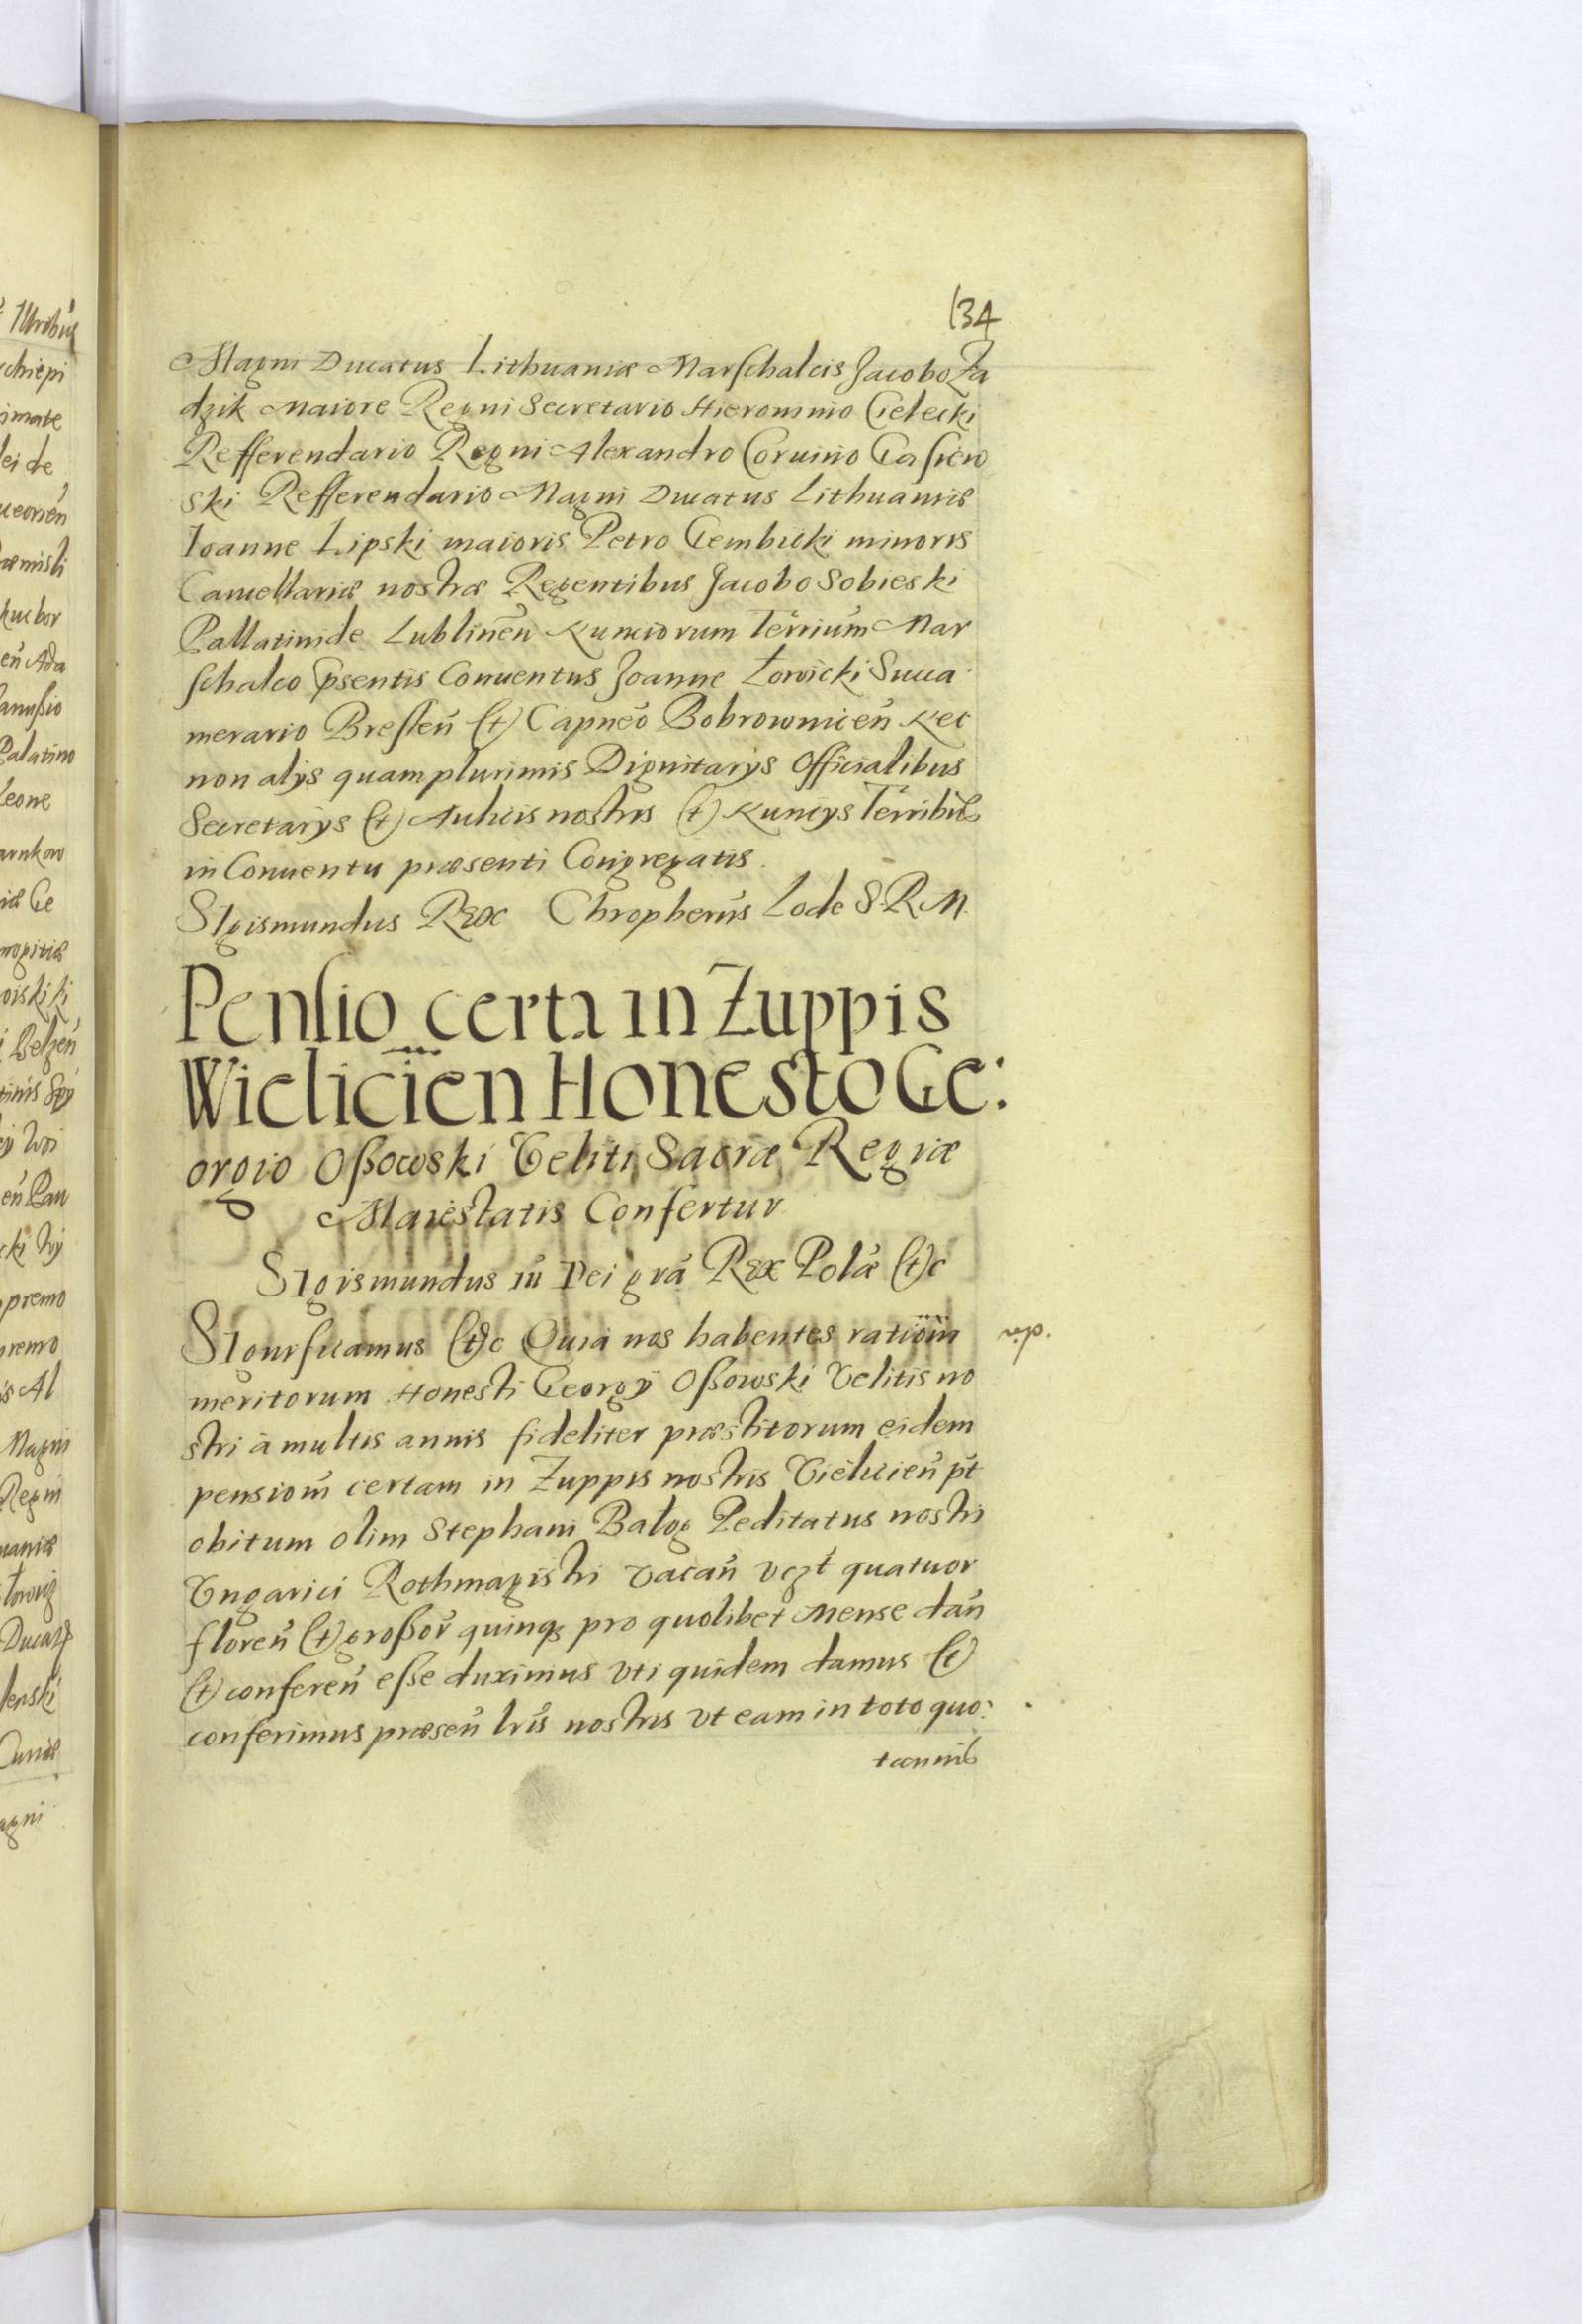 134
Magni Ducatus Lithuaniæ Marschalcis Jacobo Za
dzik Maiore Regni Secretario Hieronimo Cielecki
Refferendario Regni Alexandro Coruino Gasiew
ski Refferendario Magni Ducatus Lithuaniæ
Ioanne Lipski maioris Petro Gembicki minoris
Cancellariæ nostræ Regentibus Jacobo Sobieski
Pallatinide Lublineñ Nunciorum Terrium̃ Mar
schalco p̃sentis Conuentus Joanne Łowicki Succa
merario Bresten̄ et Capnēo Bobrownicen̄ Nec
non alijs quam plurimis Dignitarijs Officialibus
Secretarijs et Aulicis nostris et Nuncijs Terribus
in Conuentu præsenti Congregatis.
Sigismundus Rex Chropherūs Lode S. R. M.
Pensio certa in Zuppis
Wieliciēn Honesto Ge:
orgio Oßowski Veliti Sacræ Regiæ
Maiestatis Confertur
Sigismundus iii Dei grā Rex Polæ̃ etc
Significamus etc Quia nos habentes rationm̃
meritorum Honesti Georgij Oßowski Velitis no
stri à multis annis fideliter præstitorum eidem
pensionm̃ certam in Zuppis nostris Vielicien̄ p̃t
obitum olim Stephani Balog Peditatus nostri
Vngarici Rothmagistri vacan̄ vczt quatuor
floren̄ et großor̄ quinq; pro quolibet Mense dan̄
et conferen̄ eße duximus vti quidem damus et
conferimus præsen̄ lrīs nostris vt eam in toto quo:
tannis